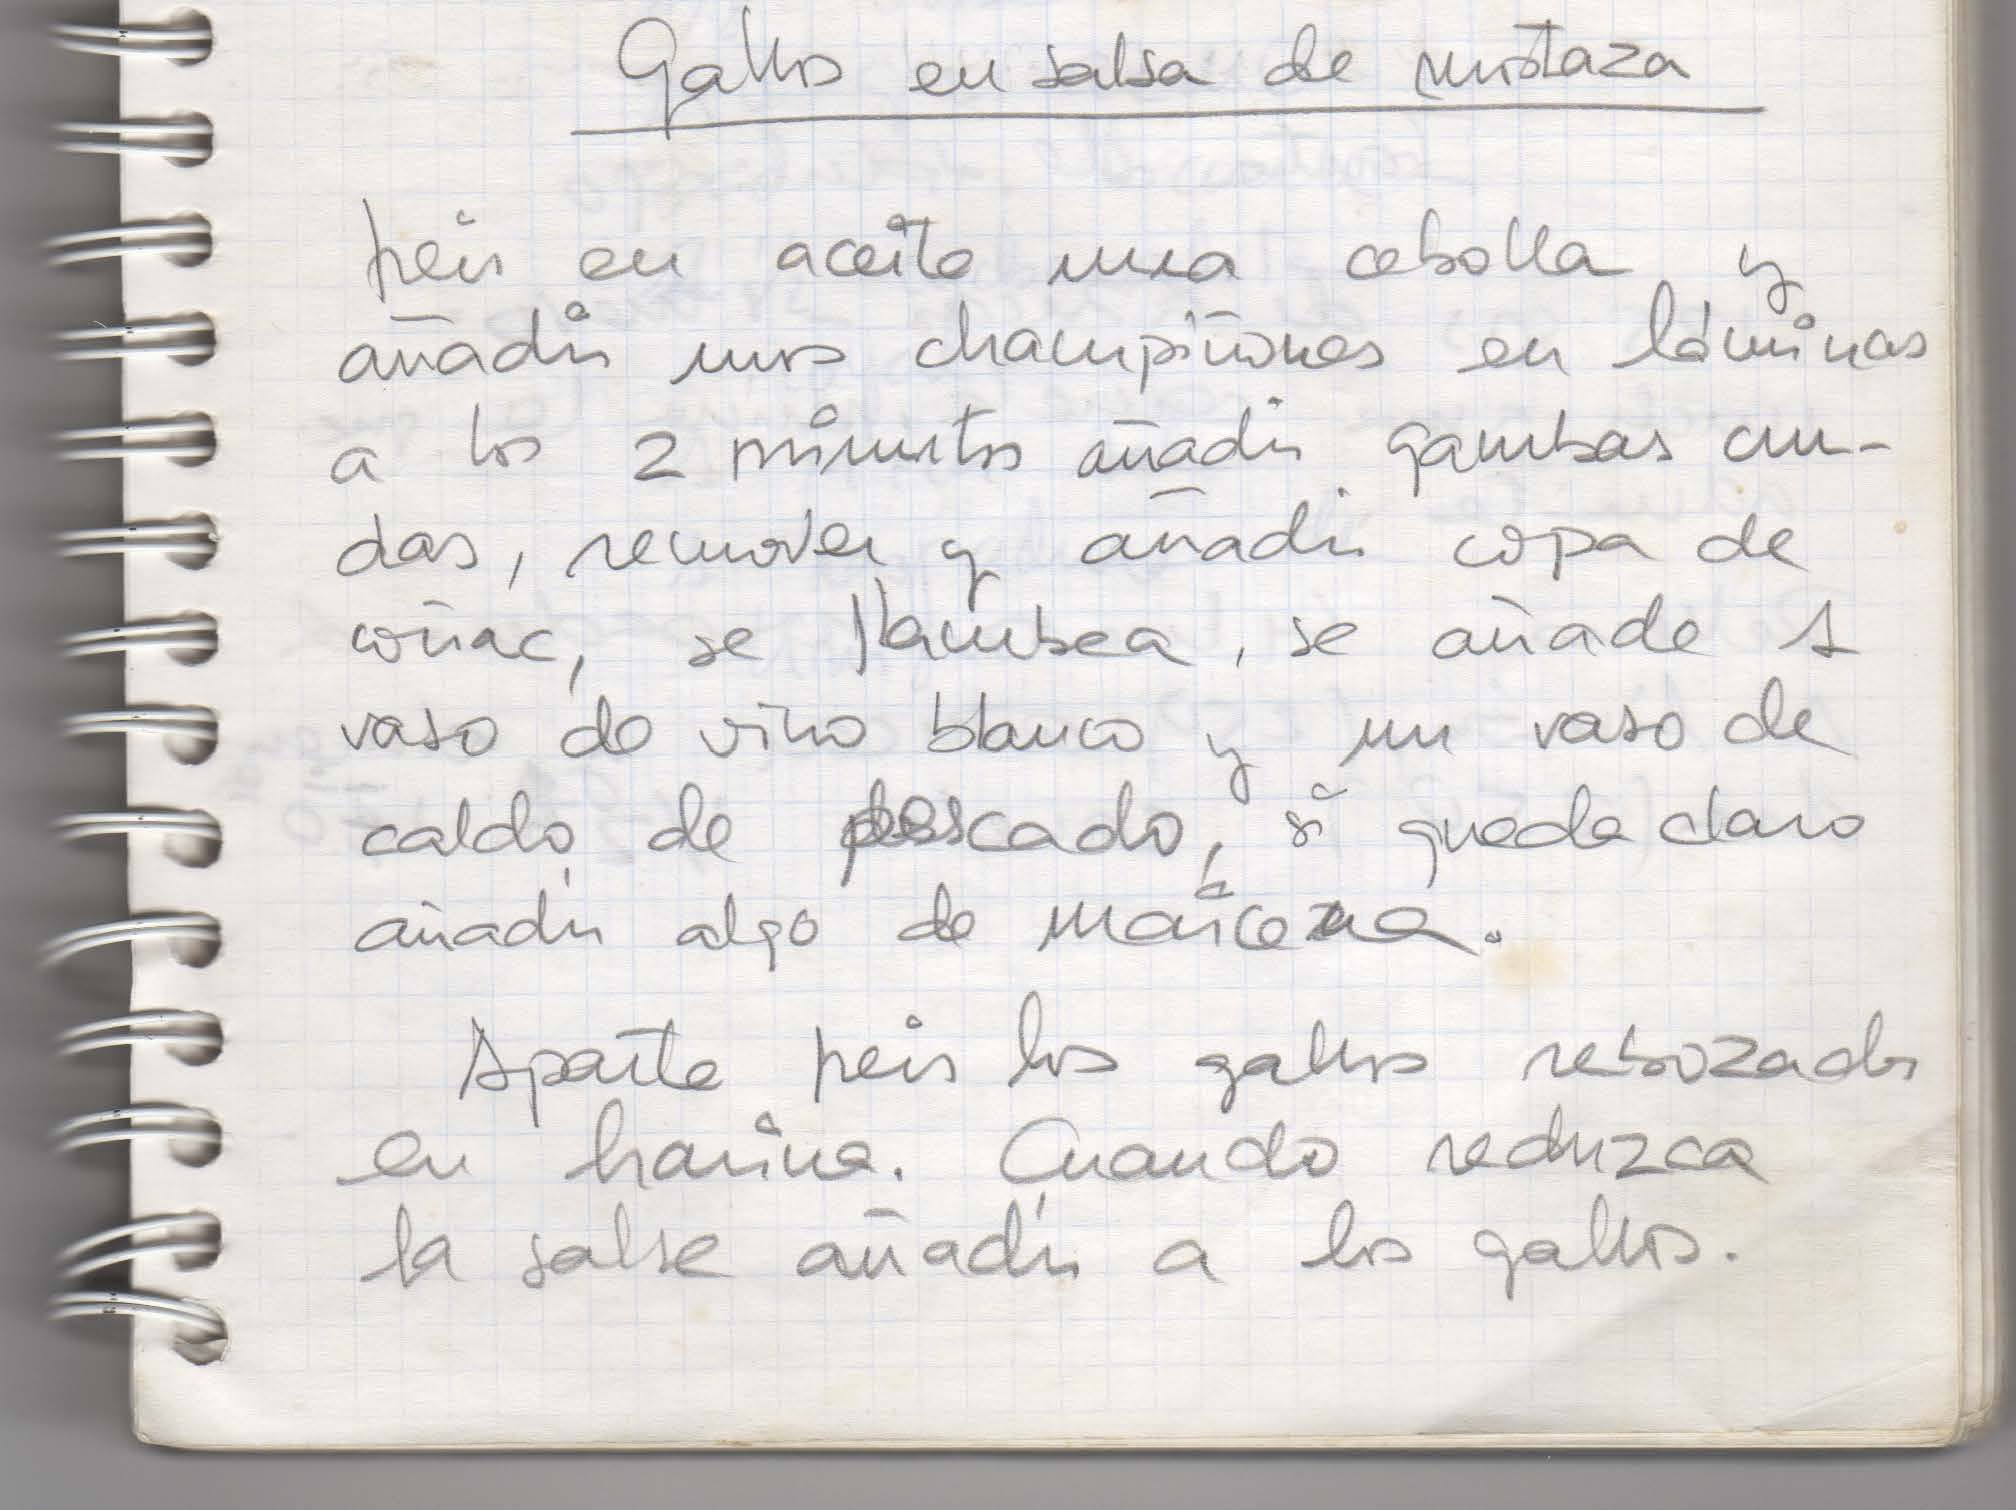 Gallos en salsa de mostaza
freir en aceite una cebolla y
añadir unos champiñones en láminas
a los 2 minutos añadir gambas cru-
das, remover y añadir copa de
coñac, se flambea, se añade 1
vaso de vino blanco y un vaso de
caldo de pescado, si queda claro
añadir algo de maicena.
Aparte freir los gallos rebozados
en harina. Cuando reduzca
la salsa añadir a los gallos.